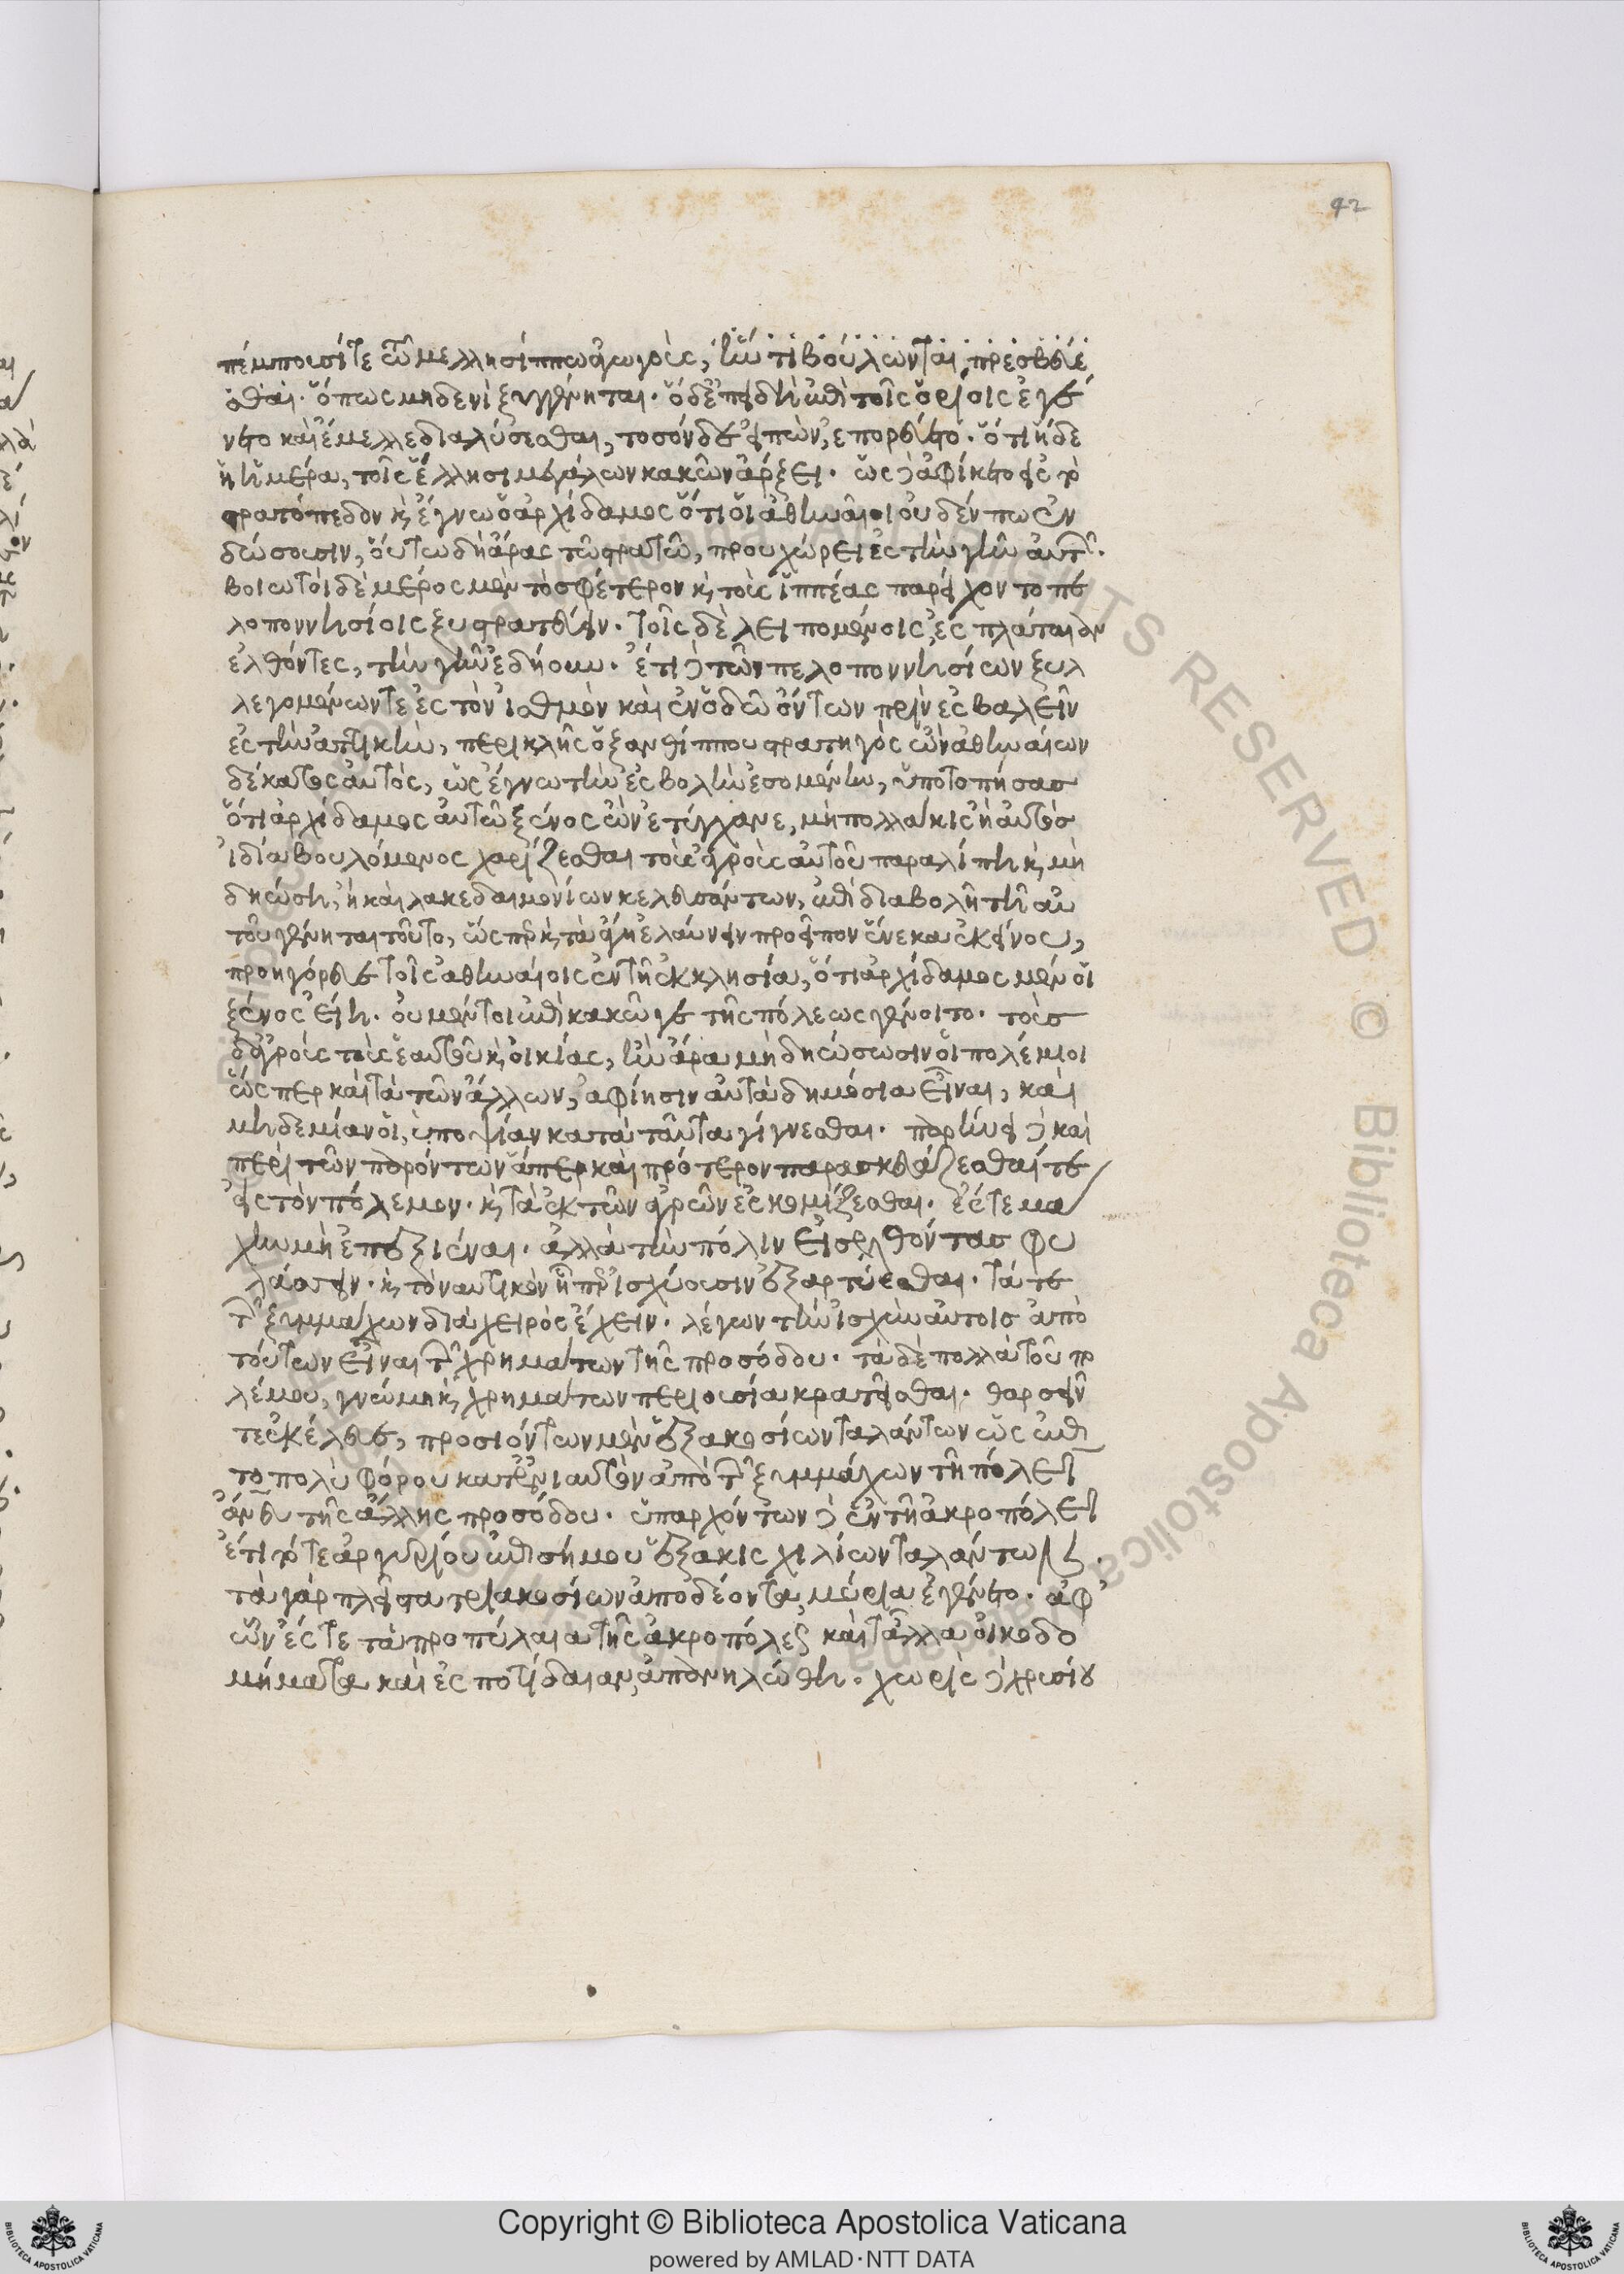 42
πέμπουσί τε τῶ μελησίππω ἀγωγοὺς, ἢν τι βούλωνται πρεσβεύε
σθαι. ὅπως μηδενὶ ξυγγένηται. ὁ δ' ἐπειδὴ ἐπὶ τοῖς ὁρίοις ἐγέ
νετο καὶ ἔμελλε διαλύσεσθαι, τοσόνδε εἰπὼν, ἐπορεύετο. ὅτι ἥδε
ἡ ἡμέρα, τοῖς ἕλλησι μεγάλων κακῶν ἄρξει. ὡς δὲ ἀφίκετο ἐς τὸ
στρατόπεδον καὶ ἔγνω ὁ ἀρχίδαμος ὅτι οἱ ἀθηναῖοι οὐδέν πω ἐν
δώσουσιν, οὕτω δὴ ἄρας τῶ στρατῶ, προυχώρει ἐς τὴν γῆν αὐτῶν.
βοιωτοὶ δὲ μέρος μὲν τὸ σφέτερον καὶ τοὺς ἱππέας παρείχοντο πε
λοποννησίοις ξυστρατεύειν. τοῖς δὲ λειπομένοις ἐς πλάταιαν
ἐλθόντες, τὴν γῆν ἐδήουν. ἔτι δὲ τῶν πελοποννησίων ξυλ
λεγομένων τε ἐς τὸν ἰσθμὸν καὶ ἐν ὁδῶ ὄντων πρὶν ἐσβαλεῖν
ἐς τὴν ἀττικὴν, περικλῆς ὁ ξανθίππου στρατηγὸς ὢν ἀθηναίων
δέκατος αὐτὸς, ὡς ἔγνω τὴν ἐσβολὴν ἐσομένην, ὑποτοπήσας
ὅτι ἀρχίδαμος αὐτῶ ξένος ὢν ἐτύγχανε, μὴ πολλάκις ἢ αὐτὸς
ἰδία βουλόμενος χαρίζεσθαι τοὺς ἀγροὺς αὐτοῦ παραλίπη καὶ μὴ
δηώση, ἢ καὶ λακεδαιμονίων κελευσάντων, ἐπὶ διαβολῆ τῆ αὐ
τοῦ γένηται τοῦτο, ὥσπερ καὶ τὰ ἄγη ἐλαύνειν προεῖπον ἕνεκα ἐκείνου,
προηγόρευε τοῖς ἀθηναίοις ἐν τῆ ἐκκλησία, ὅτι ἀρχίδαμος μέν οἱ
ξένος εἴη. οὐ μέντοι ἐπὶ κακῶ γε τῆς πόλεως γένοιτο. τοὺς
δ' ἀγροὺς τοὺς ἑαυτοῦ καὶ οἰκίας, ἢν ἄρα μὴ δηώσωσιν οἱ πολέμιοι
ὥσπερ καὶ τὰ τῶν ἄλλων, ἀφίησιν αὐτὰ δημόσια εἶναι, καὶ
μηδεμίαν οἱ, ὑποψίαν κατὰ ταῦτα γίγνεσθαι. παρήνει δὲ καὶ
περὶ τῶν παρόντων ἅπερ καὶ πρότερον παρασκευάζεσθαί τε
ἐς τὸν πόλεμον. καὶ τὰ ἐκ τῶν ἀγρῶν ἐσκομίζεσθαι. ἔς τε μά
χην μὴ ἐπεξιέναι. ἀλλὰ τὴν πόλιν εἰσελθόντας φυ
λάσσειν. καὶ τὸ ναυτικὸν ᾗπερ ἰσχύουσιν ἐξαρτύεσθαι. τά τε
τῶν ξυμμάχων διὰ χειρὸς ἔχειν. λέγων τὴν ἰσχὺν αὐτοῖς ἀπὸ
τούτων εἶναι τῶν χρημάτων τῆς προσόδου. τὰ δὲ πολλὰ τοῦ πο
λέμου, γνώμη καὶ χρημάτων περιουσία κρατεῖσθαι. θαρσεῖν
τε ἐκέλευε, προσιόντων μὲν ἑξακοσίων ταλάντων ὡς ἐπὶ
τοπολὺ φόρου κατ' ἐνιαυτὸν ἀπὸ τῶν ξυμμάχων τῆ πόλει
ἄνευ τῆς ἄλλης προσόδου. ὑπαρχόντων δὲ ἐν τῆ ἀκροπόλει
ἔτι τότε ἀργυρίου ἐπισήμου ἑξακισχιλίων ταλάντων.
τὰ γὰρ πλεῖστα τριακοσίων ἀποδέοντα, μύρια ἐγένετο. ἀφ'
ὧν ἔς τε τὰ προπύλαια τῆς ἀκροπόλεως καὶ τἆλλα οἰκοδο
μήματα καὶ ἐς ποτίδαιαν, ἀπανηλώθη. χωρὶς δὲ χρυσίου
Copyright © Biblioteca Apostolica Vaticana
powered by AMLAD·NTT DATA